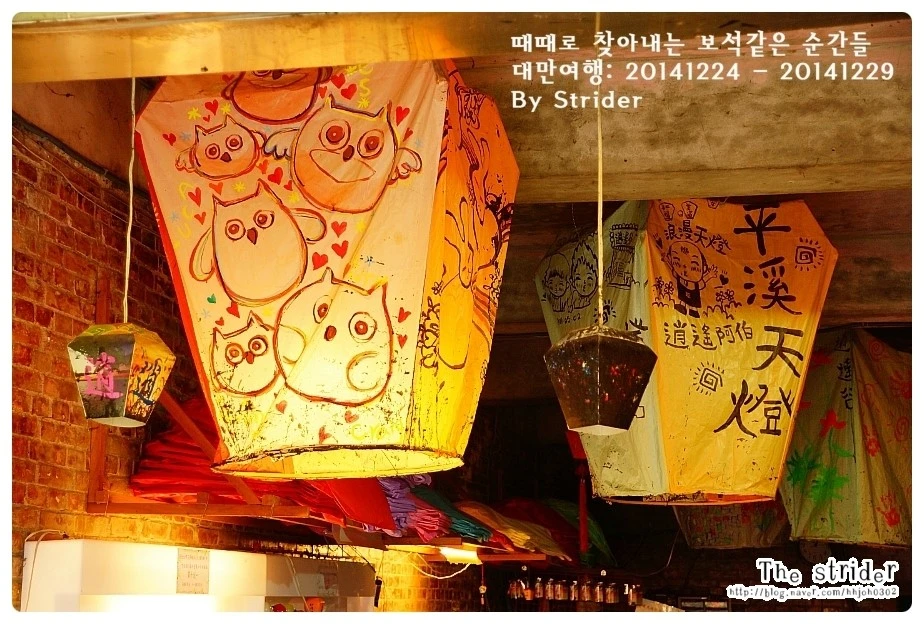 때때로 찾아내는 보석같은 순간들
대만여행: 20141224 - 20141229
By Strider
平溪天燈
浪漫天燈
逍遙阿伯
逍遙
The strider
http://blog.naver.com/hhjoh0302